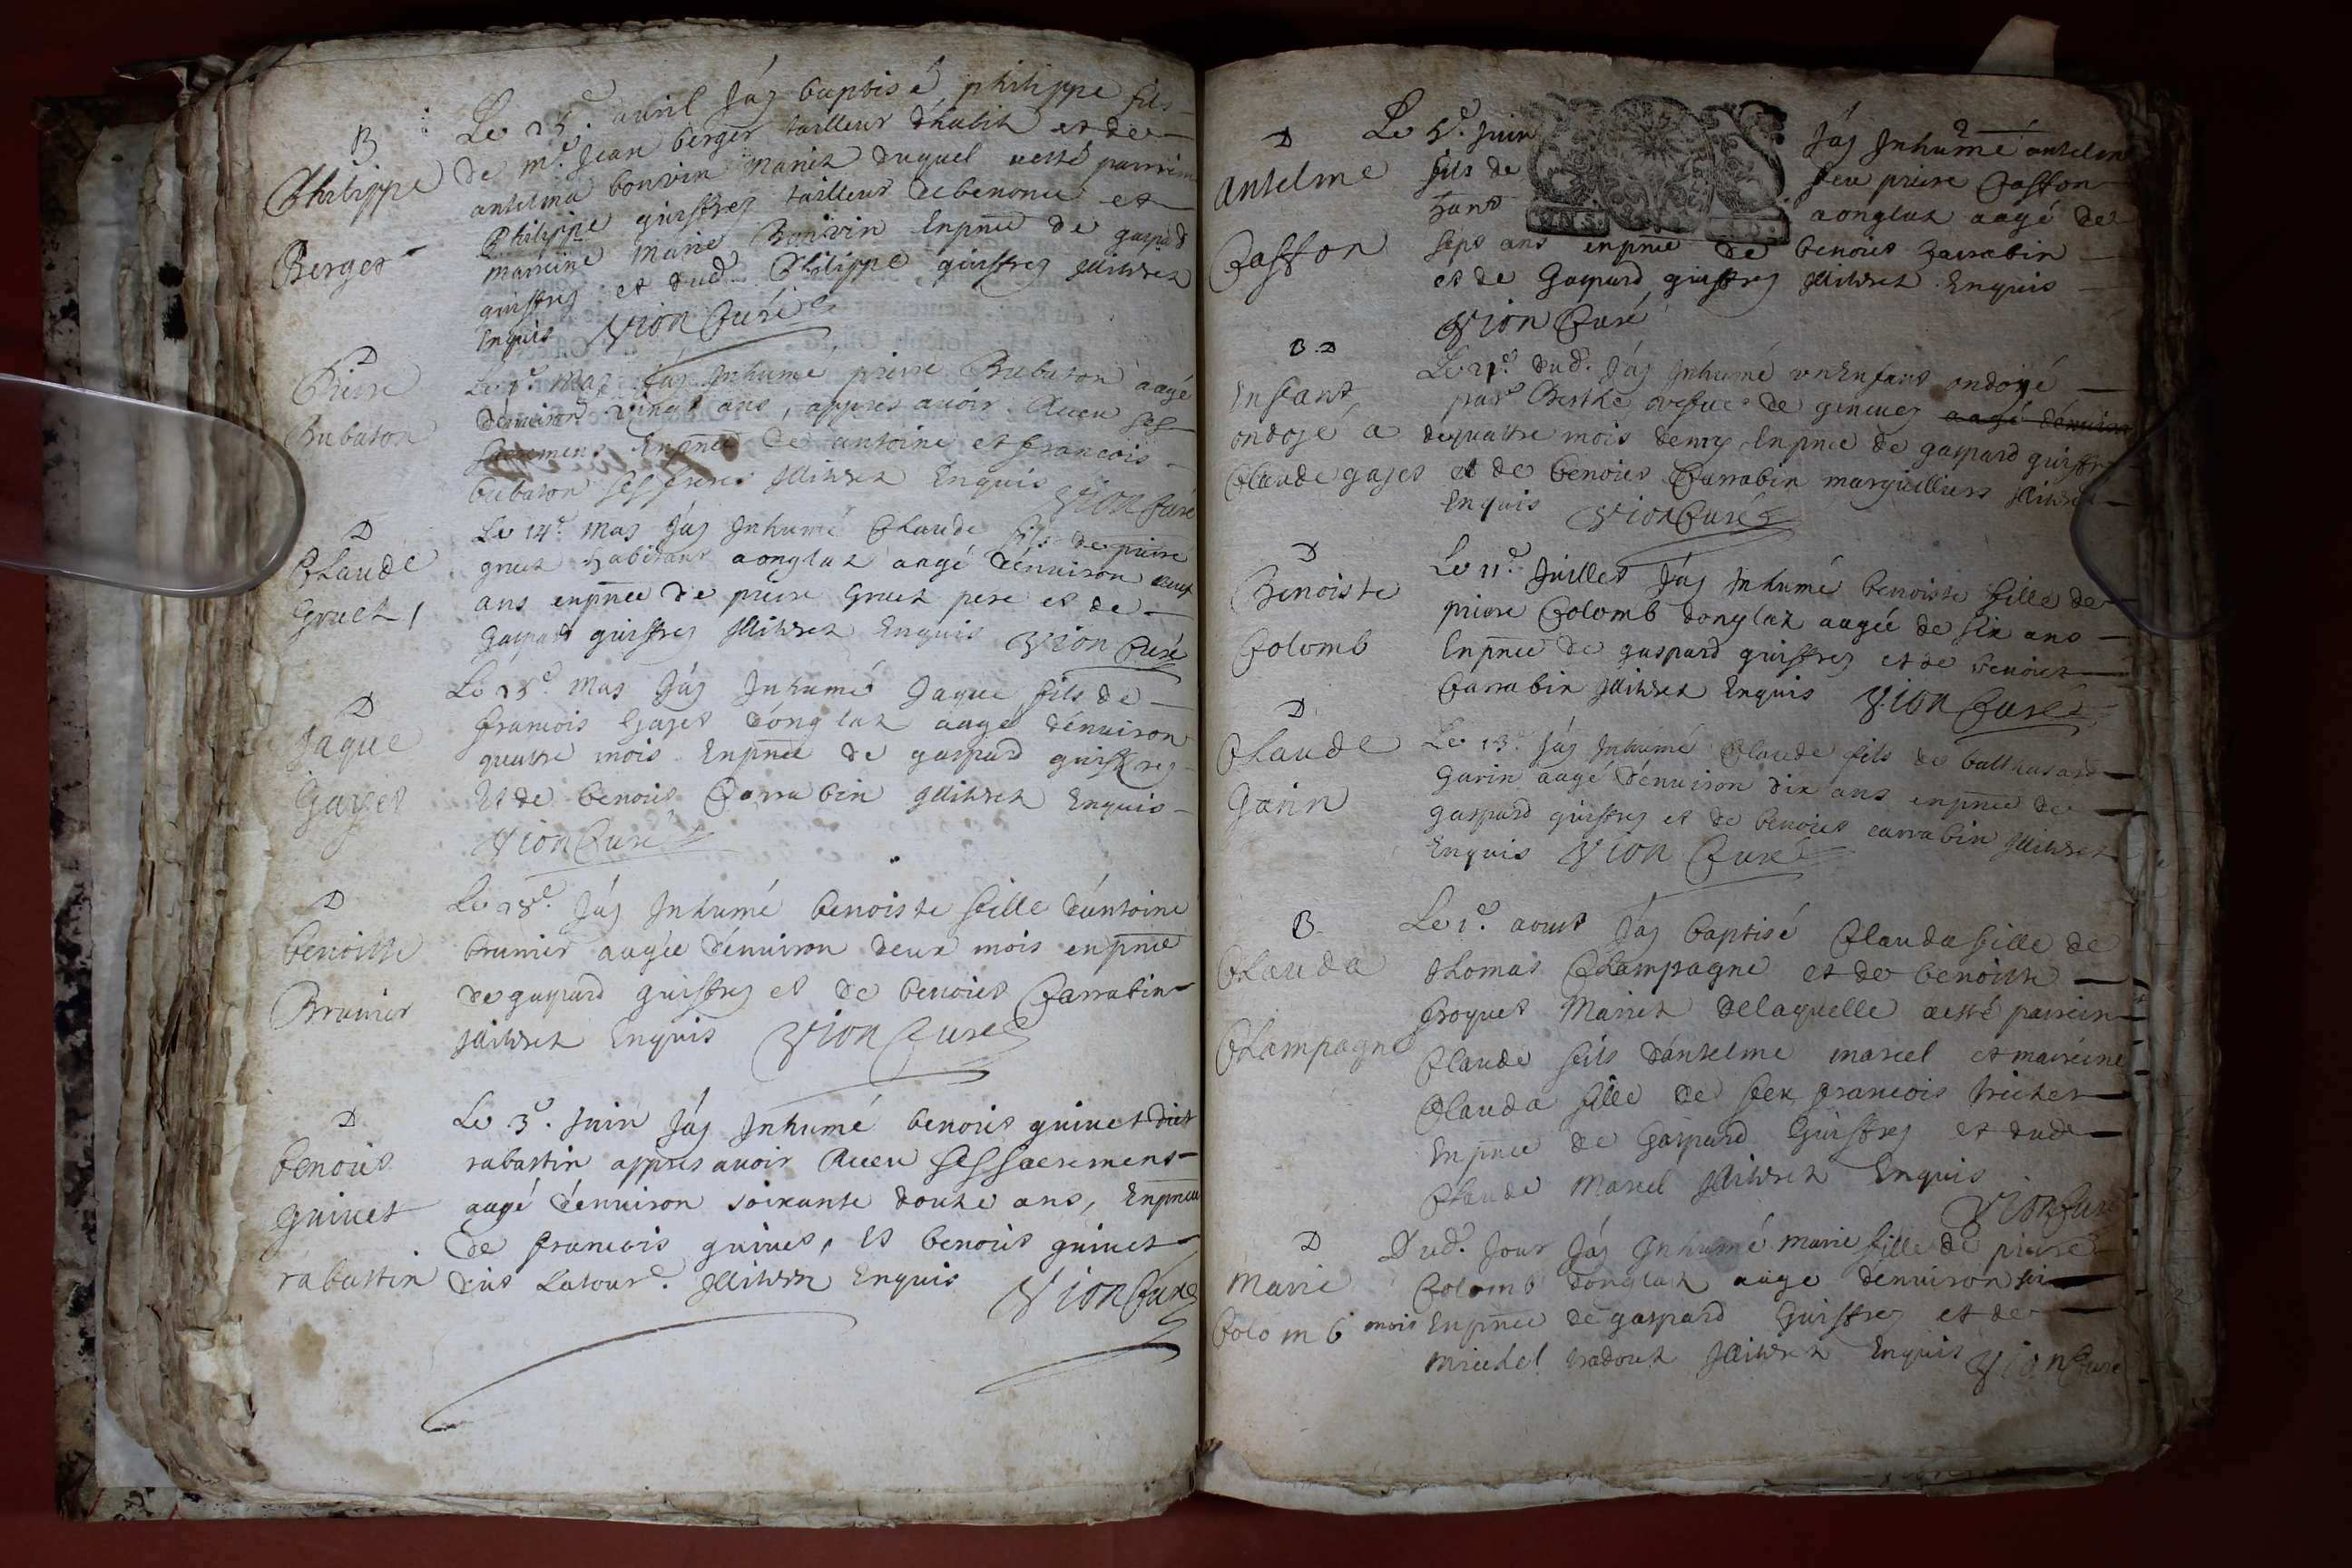 B
Philippe
Berger
Le 25e. avril Jáy baptisé philippe fils
de me. Jean berger tailleur d'habits et de
antelma bonvin mariez duquel aesté parrin
Philippe guiffrey tailleur de benonce et
marreine marie Bonivin Enpnce de gaspard
guiffrey et dud. Philippe guiffrey Illitrez
Enquis Vion Curé
D
Pierre
Bubaton
Le 1e. may Jáy Inhumé pierre Bubaton aagé
denuiron vingt ans, appres avoir Receu ses
sacremens Enpnce de antoine et francois
bubaton ses freres Illitrez Enquis
Vion Curé
D
Claude
Gruez
Le 14e. may Jáy Inhumé Claude fils de pierre
gruez habitant a onglaz aagé dénuiron deux
ans enpnce de pierre Gruez pere et de
Gaspard guiffrey Illitrez Enquis Vion Curé
D
Jaque
Gayet
Le 25e. may Jáy Inhumé Jaque fils de
francois Gayet dónglaz aagé dénuiron
quattre mois Enpnce de gaspard guiffrey
Et de benoist Carrabin Illitrez Enquis
Vion Curé
D
benoiste
Brunier
Le 28e. Jáy Inhumé benoiste fille dántoine
brunier aagée dénuiron deux mois enpnce
de gaspard guiffrey et de benoist Carrabin
Illitrez Enquis Vion Curé
D
benoist
guinet
rabattin
Le 3e. Juin Jáy Inhumé benoist guinet dict
rabattin appres avoir Receu ses sacremens
aagé dénuiron soixante douze ans, Enpnce
de francois guinet, Et benoist guinet
dit Latour. Illitrez Enquis Vion Curé
2
D
Antelme
Casson
Le 5e. Juin Jáy Inhumé antelme
fils de feu pierre Casson
a onglaz aagé de
sept ans enpnce de benoist Carrabin
et de Gaspard guiffrey Illitrez Enquis
Vion Curé
B. D
Enfant
ondoyé a
Claude gayet
Le 21e. dud. Jáy Inhumé un Enfant ondoyé
par Berthe de aagé dénuiron
de quattre mois Enpnce de gaspard guiffrey
et de benoist Carrabin marguilliers Illitrez
Enquis Vion Curé
D
Benoiste
Colomb
Le 11e. Juillet Jáy Inhumé benoiste fille de
pierre Colomb donglaz aagée de six ans
Enpnce de gaspard guiffrey et de benoist
Carrabin Illitrez Enquis Vion Curé
D
Claude
Garin
Le 13e. Jáy Inhumé Claude fils de balthazard
Garin aagé dénuiron dix ans enpnce de
gaspard guiffrey et de benoist carrabin Illitrez
Enquis Vion Curé
B
Clauda
Champagne
Le 1e. aoust Jáy baptisé Clauda fille de
thomas Champagne et de benoiste
froquet Mariez delaquelle aesté parrein
Claude fils dántelme marcel et marreine
Clauda fille de feu francois trichet
Enpnce de Gaspard Guiffrey et dud.
Claude Marcel Illitrez Enquis
Vion Curé
D
Marie
Colomb
Dud. Jour Jáy Inhumé marie fille de pierre
Colomb donglaz aage denuiron six
mois Enpnce de gaspard Guiffrey et de
michel Illitrez Enquis Vion Curé